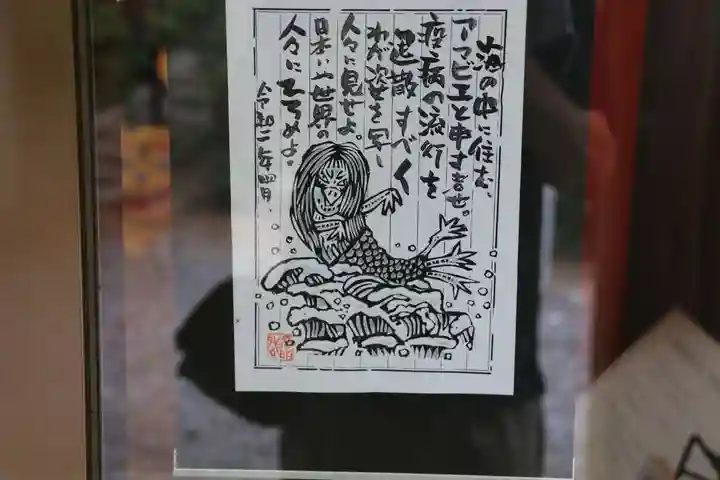 海の中に住む、
アマビエと申す者也。
疫病の流行を
退散すべく
わが姿を写し
人々に見せよ。
日本いや世界の
人々にひろめよ。
令和二年四月、